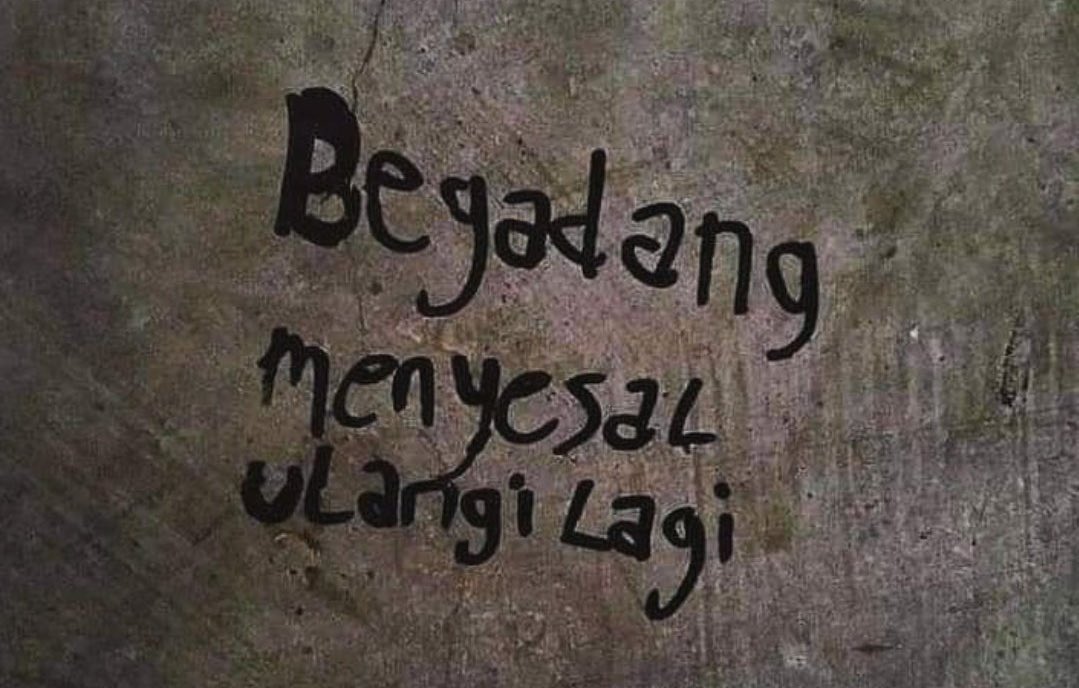 Begadang
menyesal
ulangi lagi